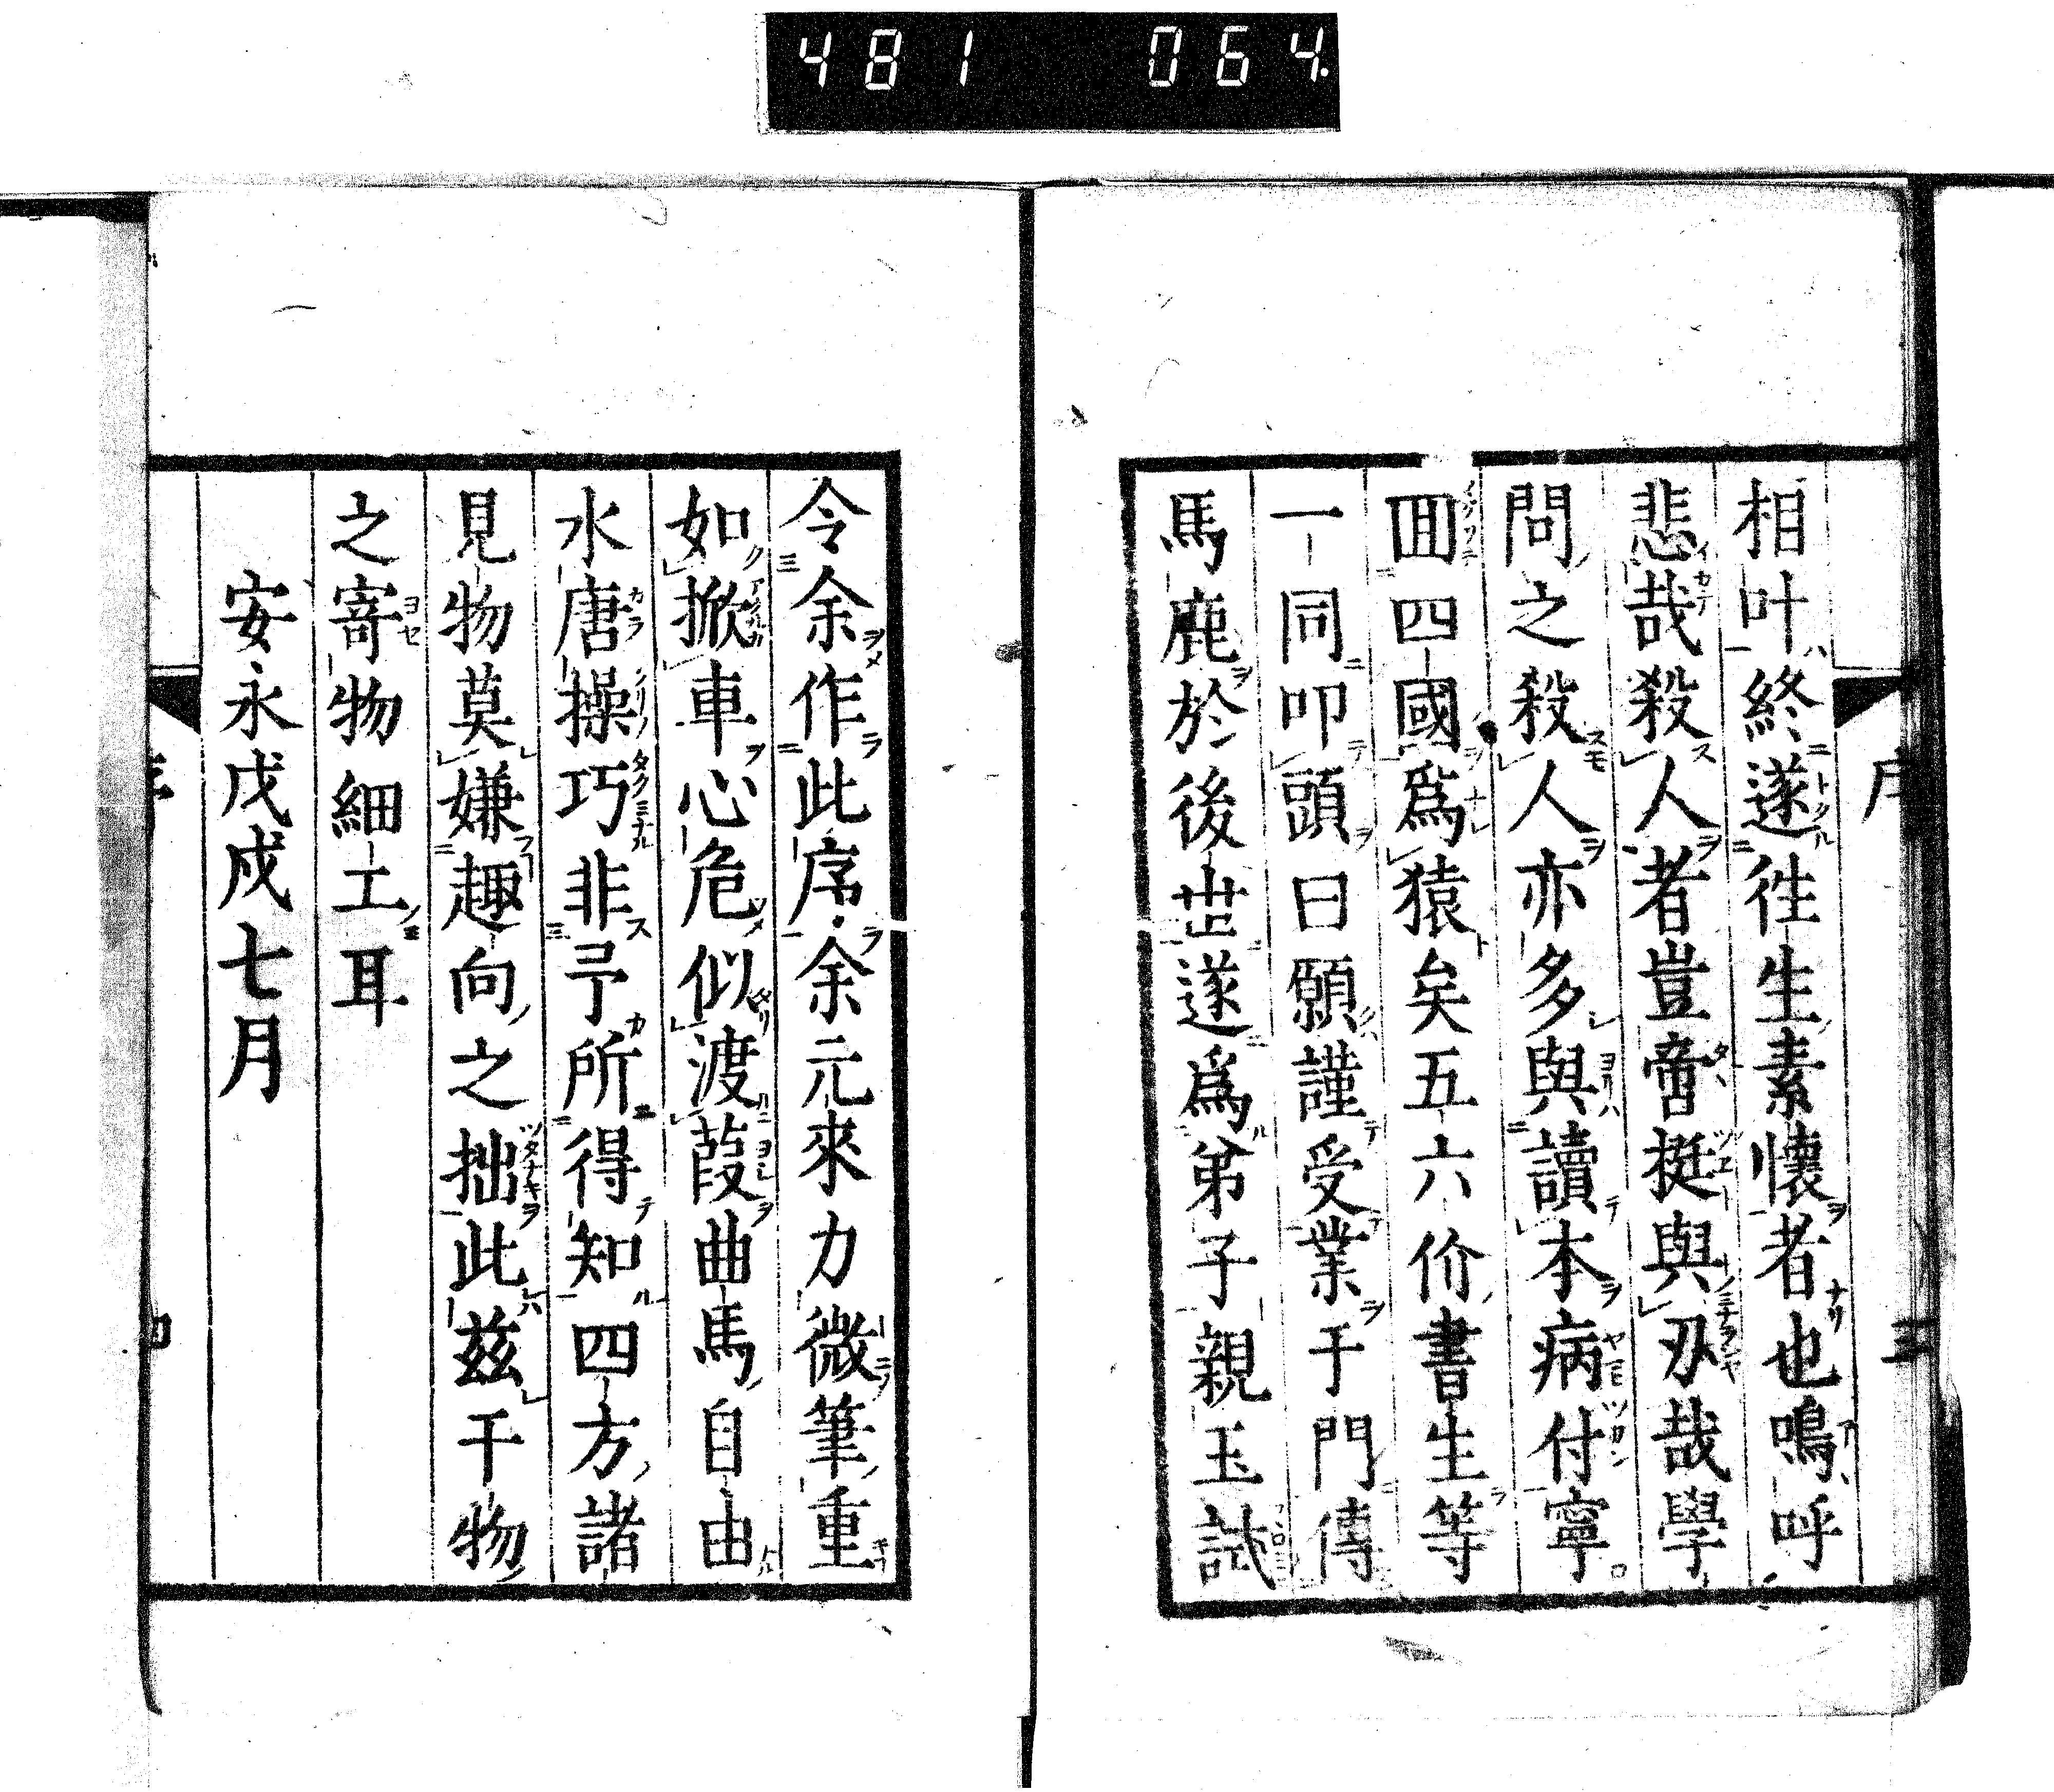 481 064.
相叶終遂徃生素懷者也嗚呼
悲哉殺人者豈啻挺與刃哉學
問之殺人亦多與讀本病付寧
囬四國爲猿矣五六价書生等
一同叩頭曰願謹受業于門傳
馬鹿於後世遂爲弟子親玉試
令余作此序余元來力微筆重
如掀車心危似渡葭曲馬自由
水唐操巧非予所得知四方諸
見物莫嫌趣向之拙此兹干物
之寄物細工耳
安永戊戌七月